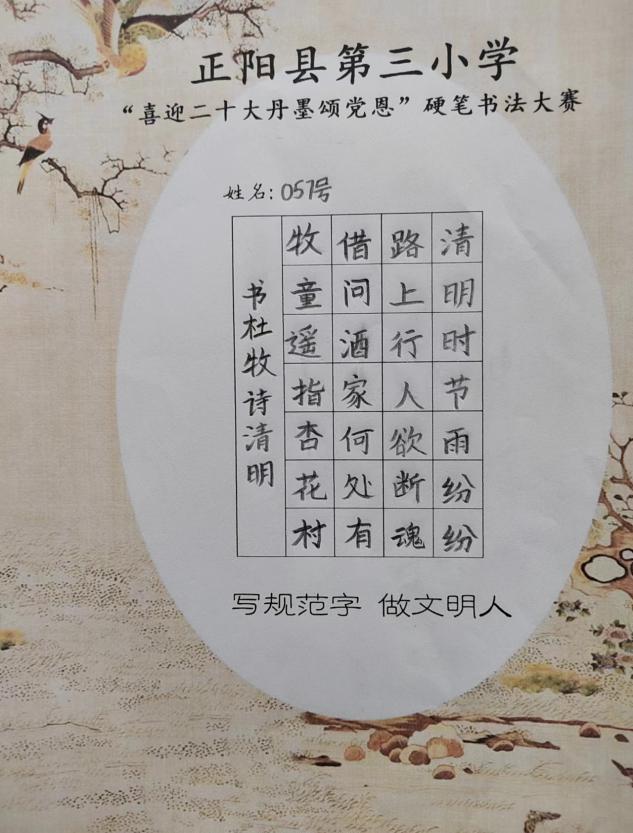 正阳县第三小学
“喜迎二十大丹墨颂党恩”硬笔书法大赛
姓名：057号
清明时节雨纷纷
路上行人欲断魂
借问酒家何处有
牧童遥指杏花村
书杜牧诗清明
写规范字 做文明人